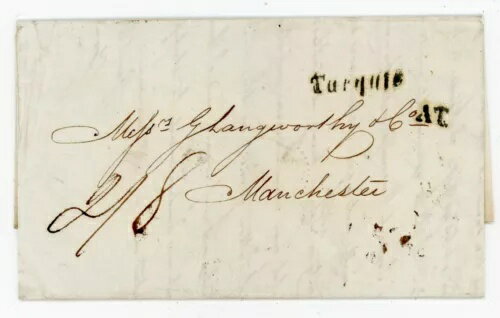 Turquie
AT
Mesſrs G Langworthy & Co
Manchester
2/8